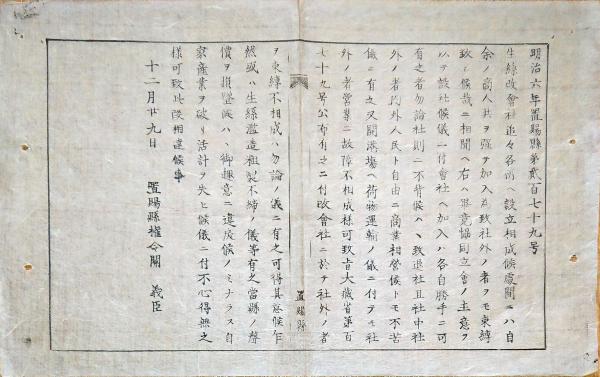 明治六年置賜縣第貳百七十九号
生絲改會社追々各所ヘ設立相成候處間ニハ自
余ノ商人共ヲ強テ加入為致社外ノ者ヲモ束縛
致シ候哉ニ相聞ヘ右ハ畢竟協同立會ノ主意ヲ
以テ設ケ候儀ニ付會社ヘ加入ハ各自勝手ニ可
有之者勿論社則ニ不背候ハヽ致退社且社中社
外ノ者内外人民ト自由ニ商業相營候トモ不苦
儀ニ有之又開港塲ヘ荷物運輸ノ儀ニ付テモ社
外ノ者營業ニ故障不相成様可致旨大蔵省第百
七十九号公布有之ニ付改會社ニ於テ社外ノ者
ヲ束縛不相成ハ勿論ノ儀ニ有之可得其意候乍
然或ハ生絲濫造粗製不締ノ儀等有之當縣ノ聲
價ヲ損墜候ハヽ御趣意ニ違戻候ノミナラス自
家産業ヲ破リ活計ヲ失ヒ候儀ニ付不心得無之
様可致此段相達候事
十二月廿九日
置賜縣權令關義臣
置賜縣